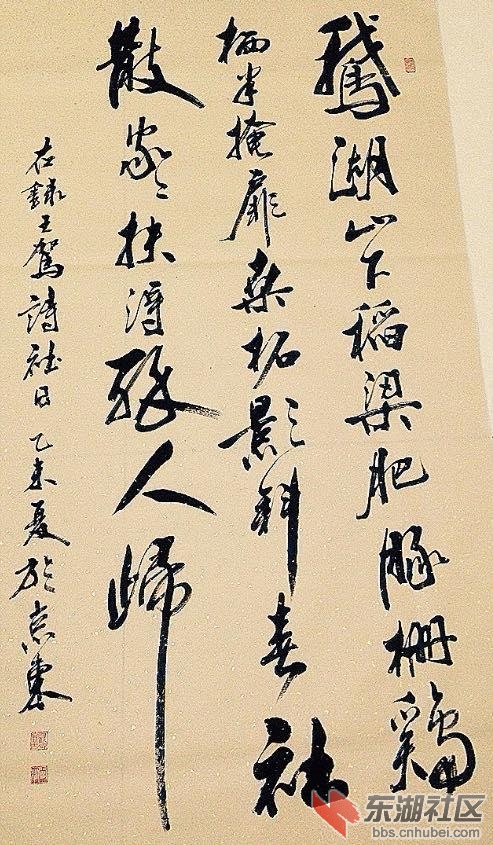 鵝湖山下稻梁肥豚栅鷄
栖半掩扉桑柘影斜春社
散家々扶得醉人歸
右錄王駕詩社日 乙未夏於京東
东湖社区
bbs.cnhubei.com